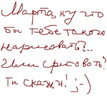 Марта, ну что
бы тебе такого
нарисовать?..
Или срисовать?
Ты скажи! ;-)